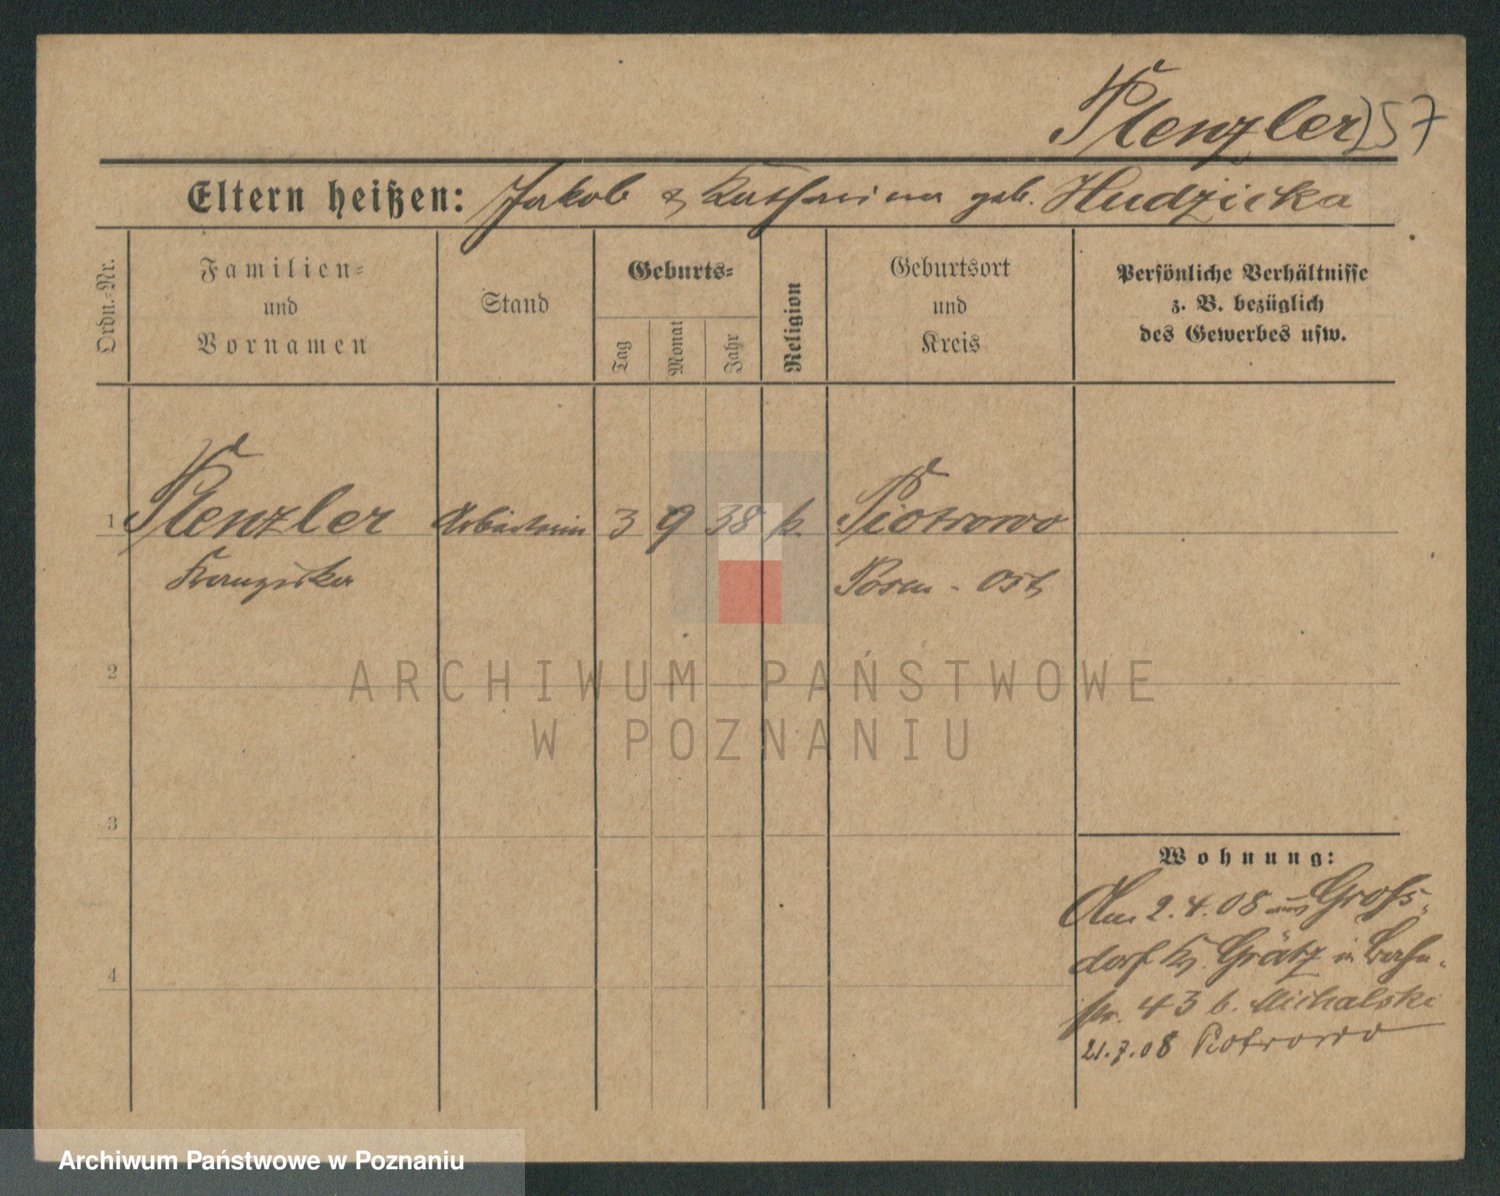 Stenzler 257
Eltern heißen: Jakob & Katharina geb. Hudzicka
Ordn.-Nr.
Familien-
und
Vornamen
Stand
Geburts-
Tag
Monat
Jahr
Religion
Geburtsort
und
Kreis
Persönliche Verhältnisse
z. B. bezüglich
des Gewerbes usw.
1 Stenzler Arbeiterin 3 9 38 k. Piotrowo
Franziska Posen - Ost
2
ARCHIWUM PAŃSTWOWE
W POZNANIU
3
4
Wohnung:
Am 2.4.08 aus Groß-
dorf Kr. Grätz in Bahn-
str. 43 b. Michalski
21.7.08 Piotrowo
Archiwum Państwowe w Poznaniu